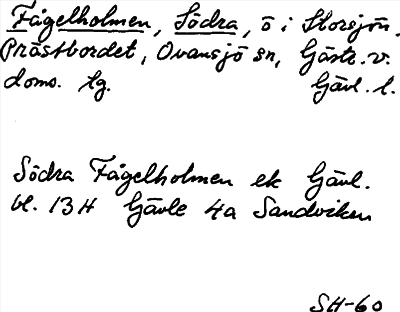 Fågelholmen, Södra, ö i Storsjön.
Prästbordet, Ovansjö sn, Gästr. v.
doms. lg. Gävl. l.
Södra Fågelholmen ek Gävl.
bl. 13H Gävle 4a Sandviken
SH-60